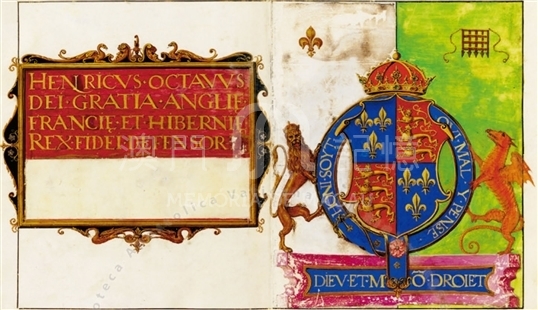 HENRICVS·OCTAVVS
DEI·GRATIA·ANGLIĘ
FRANCIĘ·ET·HIBERNIĘ
REX·FIDEI·DEFENSOR·
HONI·SOYT·QVI·MAL·Y·PENSE
DIEV·ET·M Õ·DROIET